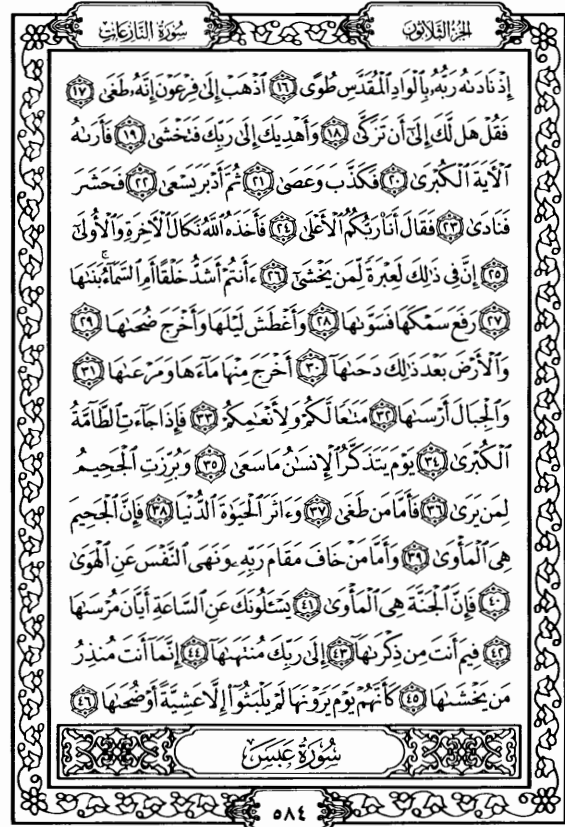 سُورَةُ النَّازِعَاتِ
الجُزْءُ الثَّلَاثُونَ
إِذْ نَادَىٰهُ رَبُّهُۥ بِٱلْوَادِ ٱلْمُقَدَّسِ طُوًى ١٦ ٱذْهَبْ إِلَىٰ فِرْعَوْنَ إِنَّهُۥ طَغَىٰ ١٧
فَقُلْ هَل لَّكَ إِلَىٰٓ أَن تَزَكَّىٰ ١٨ وَأَهْدِيَكَ إِلَىٰ رَبِّكَ فَتَخْشَىٰ ١٩ فَأَرَىٰهُ
ٱلْـَٔايَةَ ٱلْكُبْرَىٰ ٢٠ فَكَذَّبَ وَعَصَىٰ ٢١ ثُمَّ أَدْبَرَ يَسْعَىٰ ٢٢ فَحَشَرَ
فَنَادَىٰ ٢٣ فَقَالَ أَنَا۠ رَبُّكُمُ ٱلْأَعْلَىٰ ٢٤ فَأَخَذَهُ ٱللَّهُ نَكَالَ ٱلْـَٔاخِرَةِ وَٱلْأُولَىٰٓ
٢٥ إِنَّ فِى ذَٰلِكَ لَعِبْرَةً لِّمَن يَخْشَىٰٓ ٢٦ ءَأَنتُمْ أَشَدُّ خَلْقًا أَمِ ٱلسَّمَآءُ ۚ بَنَىٰهَا
٢٧ رَفَعَ سَمْكَهَا فَسَوَّىٰهَا ٢٨ وَأَغْطَشَ لَيْلَهَا وَأَخْرَجَ ضُحَىٰهَا ٢٩
وَٱلْأَرْضَ بَعْدَ ذَٰلِكَ دَحَىٰهَآ ٣٠ أَخْرَجَ مِنْهَا مَآءَهَا وَمَرْعَىٰهَا ٣١
وَٱلْجِبَالَ أَرْسَىٰهَا ٣٢ مَتَٰعًا لَّكُمْ وَلِأَنْعَٰمِكُمْ ٣٣ فَإِذَا جَآءَتِ ٱلطَّآمَّةُ
ٱلْكُبْرَىٰ ٣٤ يَوْمَ يَتَذَكَّرُ ٱلْإِنسَٰنُ مَا سَعَىٰ ٣٥ وَبُرِّزَتِ ٱلْجَحِيمُ
لِمَن يَرَىٰ ٣٦ فَأَمَّا مَن طَغَىٰ ٣٧ وَءَاثَرَ ٱلْحَيَوٰةَ ٱلدُّنْيَا ٣٨ فَإِنَّ ٱلْجَحِيمَ
هِىَ ٱلْمَأْوَىٰ ٣٩ وَأَمَّا مَنْ خَافَ مَقَامَ رَبِّهِۦ وَنَهَى ٱلنَّفْسَ عَنِ ٱلْهَوَىٰ
٤٠ فَإِنَّ ٱلْجَنَّةَ هِىَ ٱلْمَأْوَىٰ ٤١ يَسْـَٔلُونَكَ عَنِ ٱلسَّاعَةِ أَيَّانَ مُرْسَىٰهَا
٤٢ فِيمَ أَنتَ مِن ذِكْرَىٰهَآ ٤٣ إِلَىٰ رَبِّكَ مُنتَهَىٰهَآ ٤٤ إِنَّمَآ أَنتَ مُنذِرُ
مَن يَخْشَىٰهَا ٤٥ كَأَنَّهُمْ يَوْمَ يَرَوْنَهَا لَمْ يَلْبَثُوٓا۟ إِلَّا عَشِيَّةً أَوْ ضُحَىٰهَا ٤٦
سُورَةُ عَبَسَ
٥٨٤